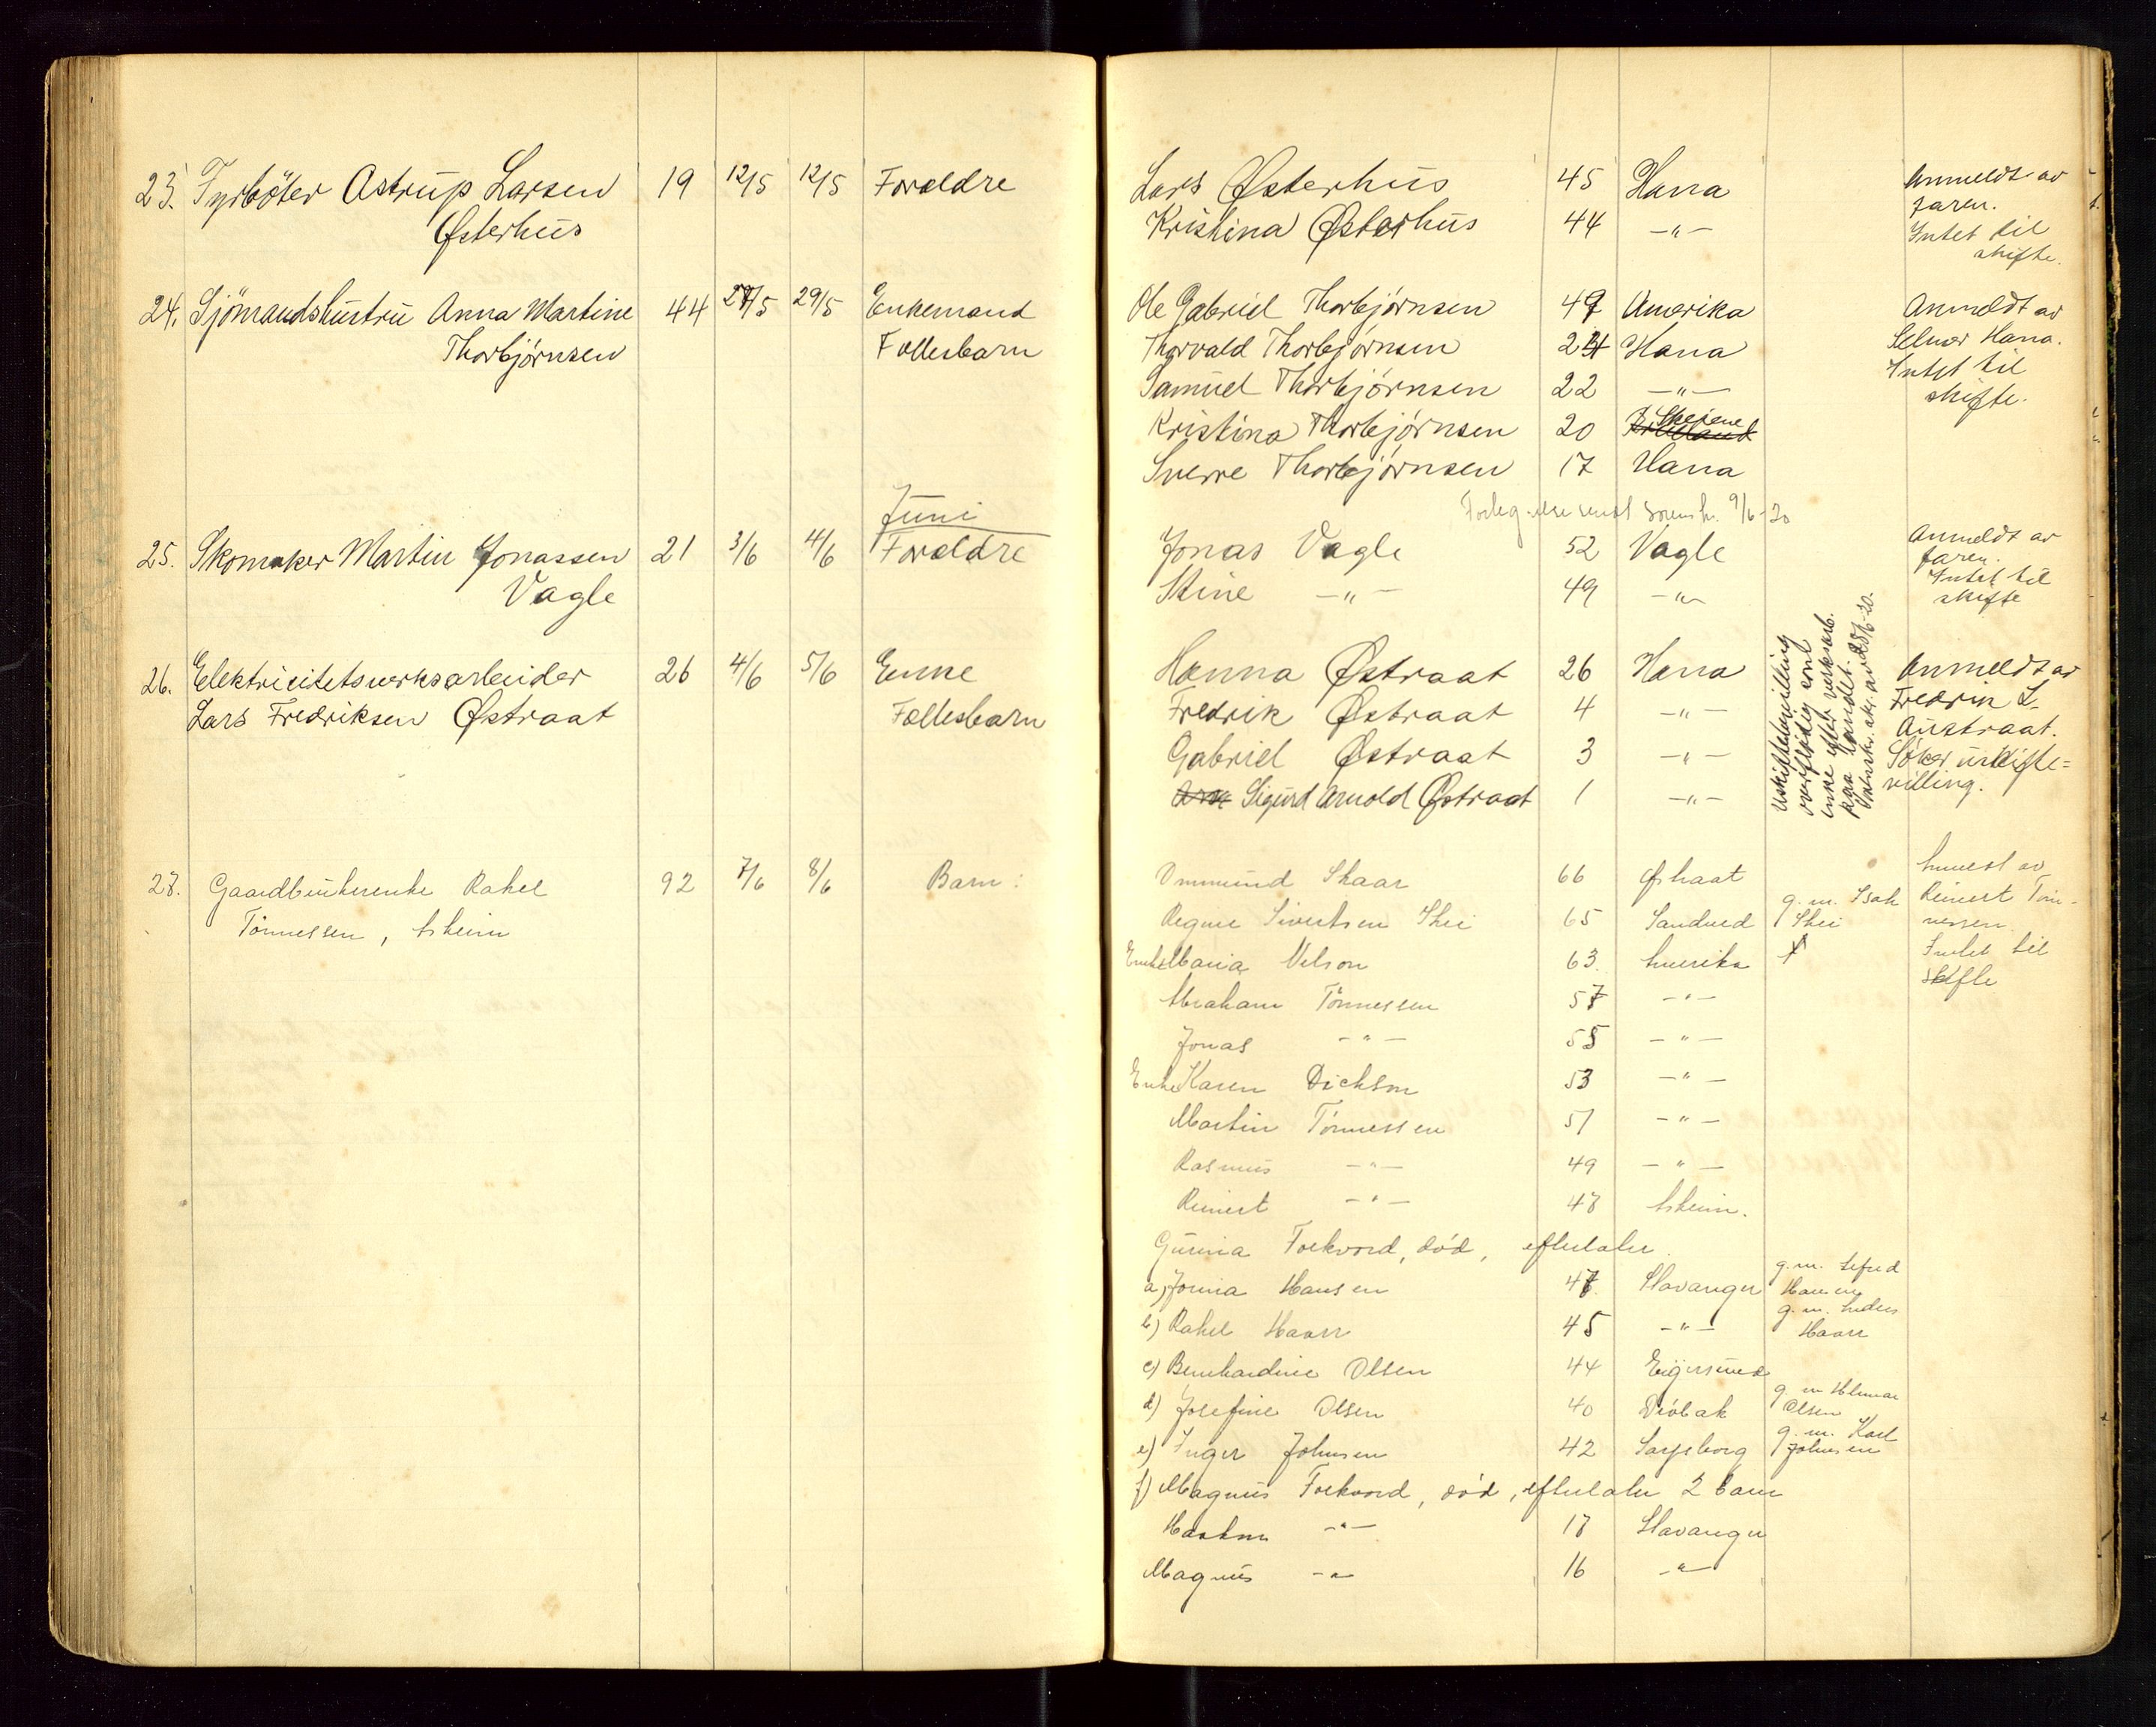 23. Fyrböter Astrup Larsen 19 12/5 12/5 Forældre Lars Østerhus 45 Hana Anmeldt av
Østerhus Kristina Østerhus 44 -"- faren.
Intet til
skifte.
24. Sjömandshustru Anna Martine 44 27/5 29/5 Enkemand Ole Gabriel Thorbjørnsen 49 Amerika Anmeldt av
Thorbjørnsen Fællesbarn Thorvald Thorbjørnsen 24 Hana Selmer Hana.
Samuel Thorbjørnsen 22 -"- Intet til
Kristina Thorbjørnsen 20 Skeiene skifte.
Sverre Thorbjørnsen 17 Hana
Juni
9/6-20
25. Skomaker Martin Jonassen 21 3/6 4/6 Forældre Jonas Vagle 52 Vagle Anmeldt av
Vagle Stine -"- 49 -"- faren.
Intet til
skifte
26. Elektricitetsverksarbeider 26 4/6 5/6 Enke Hanna Østraat 26 Hana Anmeldt av
Lars Fredriksen Østraat Fællesbarn Fredrik Østraat 4 -"- Fredrik L.
Gabriel Østraat 3 -"- Austraat.
Sigurd Arnold Østraat 1 -"- Söker uskifte=
villing.
Uskiftebevilling
overflödig som
enke efter verksarb.
paa landet.
27. Gaardbrukerenke Rakel 92 7/6 8/6 Barn: Ommund Skaar 66 Østraat Anmeldt av
Tönnessen, Asheim Regine Sivertsen Skei 65 Sandved g. m. Isak Skei Reinert Tön-
nessen
Enke Maria Nelson 63. Amerika Intet til
skifte
Abraham Tönnessen 57 -"-
Jonas -"- 55 -"-
Enke Karen Dickson 53 -"-
Martin Tönnessen 51 -"-
Rasmus -"- 49 -"-
Reinert -"- 47 Asheim.
Gurina Forkvord, död, efterlater
a) Jonna Hansen 47 Stavanger g. m. Hansen
b) Rakel Haarr 45 -"- g. m. Anders Haarr
c) Bernhardine Olsen 44 Egersund
d) Josefine Olsen 40 Dröbak g. m. Hilmar Olsen
e) Inger Johnsen 42 Sarpsborg g. m. Karl Johnsen
f) Magnus Forkvord, död, efterlater 2 barn
Haakon -"- 17 Stavanger
Magnus -"- 16 -"-